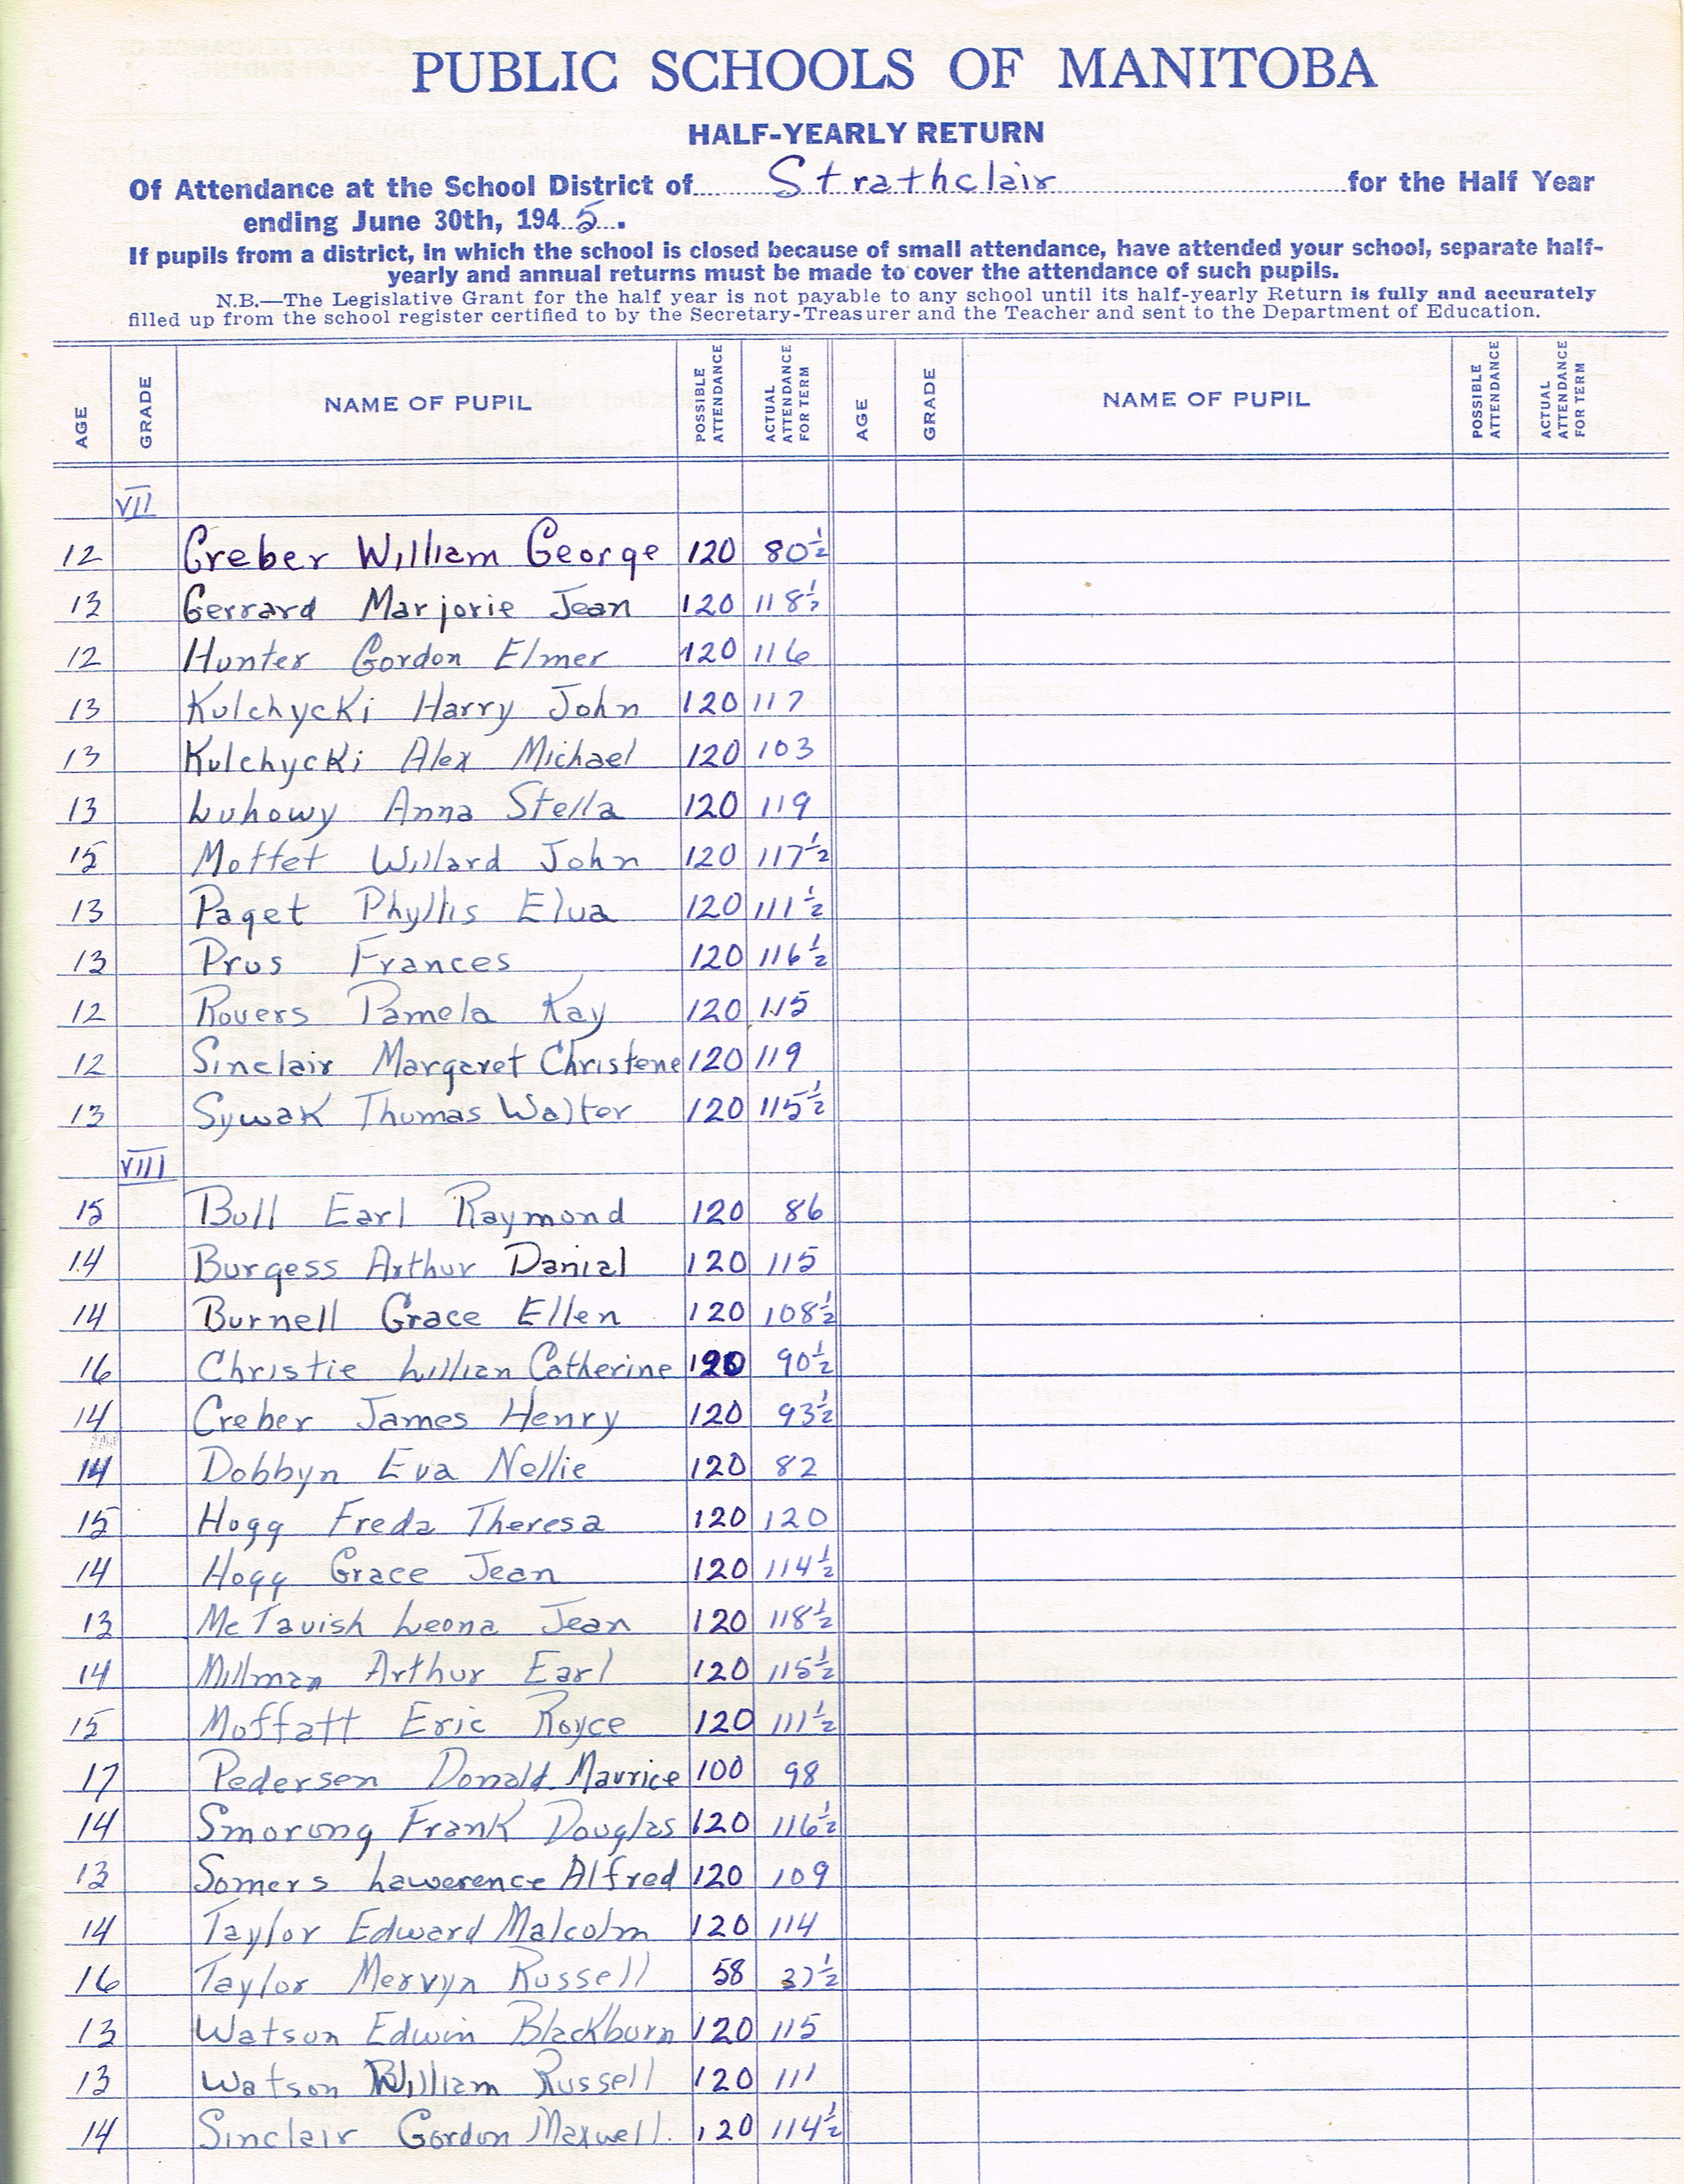 PUBLIC SCHOOLS OF MANITOBA
HALF-YEARLY RETURN
Of Attendance at the School District of Strathclair for the Half Year
ending June 30th, 1945.
If pupils from a district, in which the school is closed because of small attendance, have attended your school, separate half-
yearly and annual returns must be made to cover the attendance of such pupils.
N.B.—The Legislative Grant for the half year is not payable to any school until its half-yearly Return is fully and accurately
filled up from the school register certified to by the Secretary-Treasurer and the Teacher and sent to the Department of Education.
AGE GRADE NAME OF PUPIL POSSIBLE ATTENDANCE ACTUAL ATTENDANCE FOR TERM AGE GRADE NAME OF PUPIL POSSIBLE ATTENDANCE ACTUAL ATTENDANCE FOR TERM
VII
12 Creber William George 120 80½
13 Gerrard Marjorie Jean 120 118½
12 Hunter Gordon Elmer 120 116
13 Kulchycki Harry John 120 117
13 Kulchycki Alex Michael 120 103
13 Luhowy Anna Stella 120 119
15 Moffet Willard John 120 117½
13 Paget Phyllis Elva 120 111½
13 Prus Frances 120 116½
12 Rovers Pamela Kay 120 115
12 Sinclair Margaret Christene 120 119
13 Sywak Thomas Walter 120 115½
VIII
15 Bull Earl Raymond 120 86
14 Burgess Arthur Danial 120 115
14 Burnell Grace Ellen 120 108½
16 Christie Lillian Catherine 120 90½
14 Creber James Henry 120 93½
14 Dobbyn Eva Nellie 120 82
15 Hogg Freda Theresa 120 120
14 Hogg Grace Jean 120 114½
13 McTavish Leona Jean 120 118½
14 Millman Arthur Earl 120 115½
15 Moffatt Eric Royce 120 111½
17 Pedersen Donald Maurice 100 98
14 Smorong Frank Douglas 120 116½
13 Somers Lawerence Alfred 120 109
14 Taylor Edward Malcolm 120 114
16 Taylor Mervyn Russell 58 37½
13 Watson Edwin Blackburn 120 115
13 Watson William Russell 120 111
14 Sinclair Gordon Maxwell. 120 114½